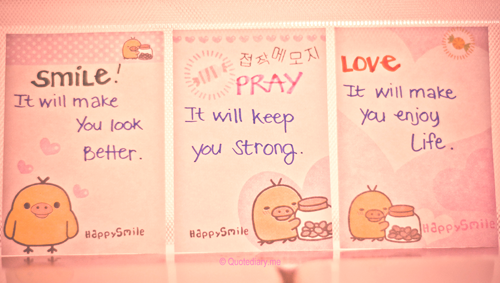 SMILE!
It will make
You look
Better.
HappySmile
접착메모지
PRAY
It will keep
you strong.
HappySmile
LOVE
It will make
You enjoy
Life.
HappySmile
© Quotediary.me